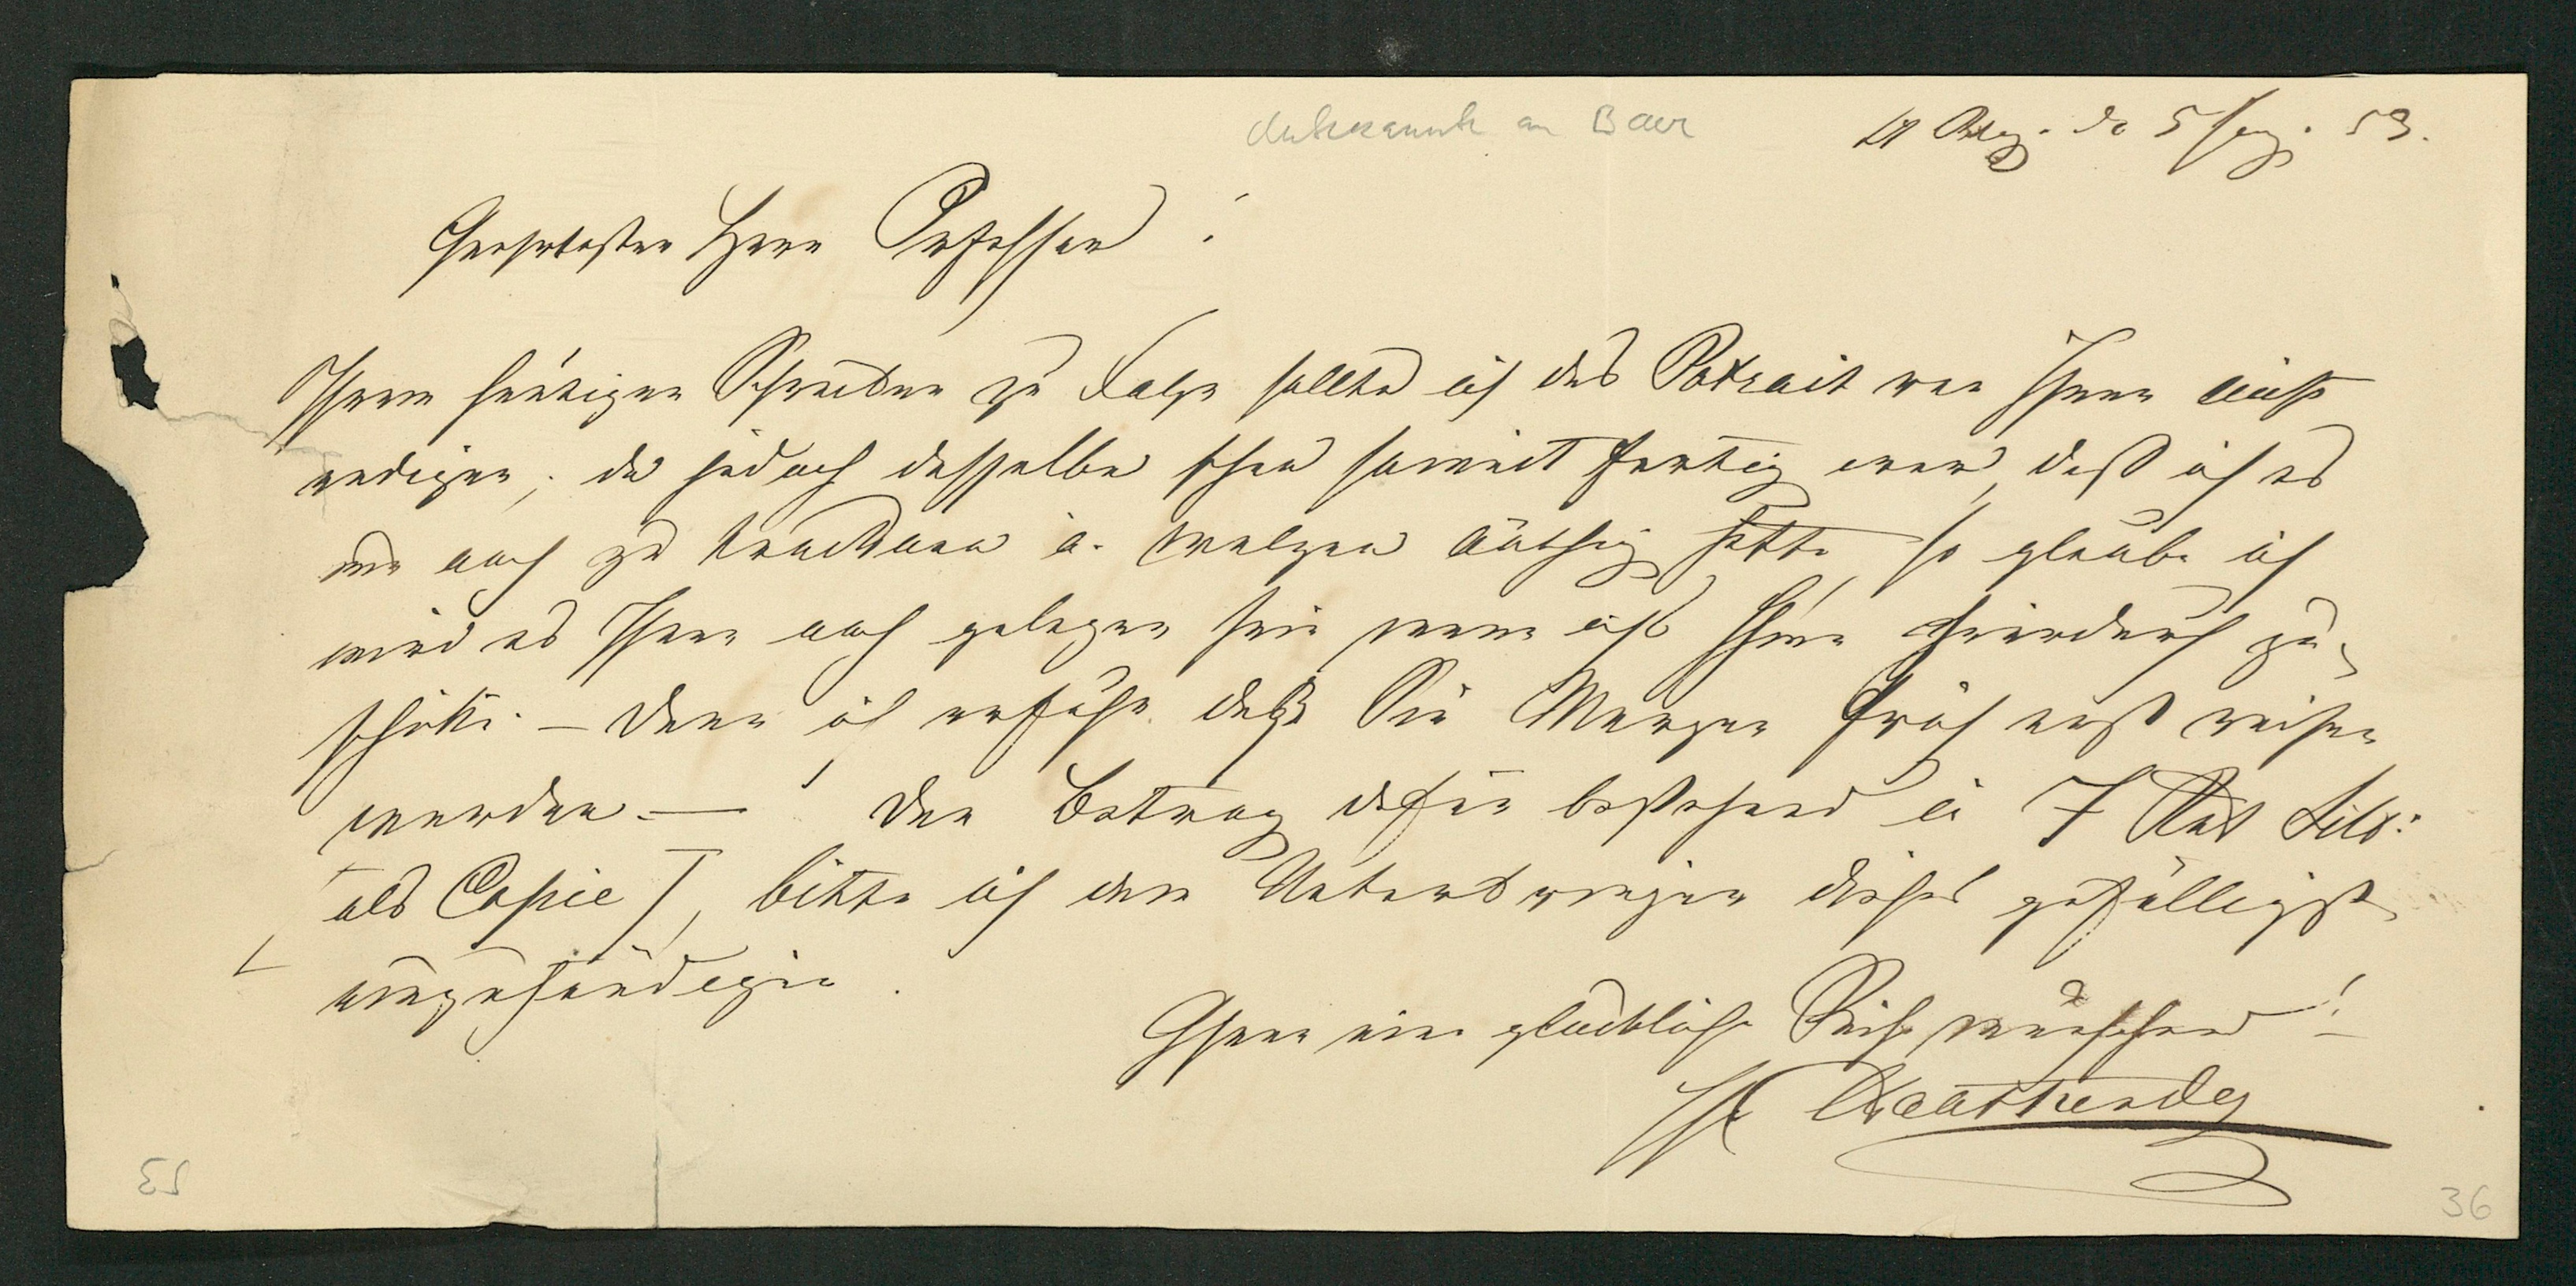 Unbekannt an Baer
d 5 Sep. 53.
Geehrtester Herr Professor!
Ihrem heutigen Schreiben zu Folge sollte ich das Portrait von Ihnen nicht
endigen; da jedoch dasselbe schon soweit fertig war, daß ich es
nur noch zu trocknen u. walzen nöthig hatte, so glaube ich
wird es Ihnen auch gelegen sein wenn ich's Ihnen hierdurch zu-
schicke. — Denn ich erfuhr daß Sie Morgen Früh erst reisen
werden. — Den Betrag dafür bestehend in 7 Rub Silb:
als Copie), bitte ich dem Ueberbringer dieses gefälligst
einzuhändigen.
Ihnen eine glückliche Reise wünschend!
53
36